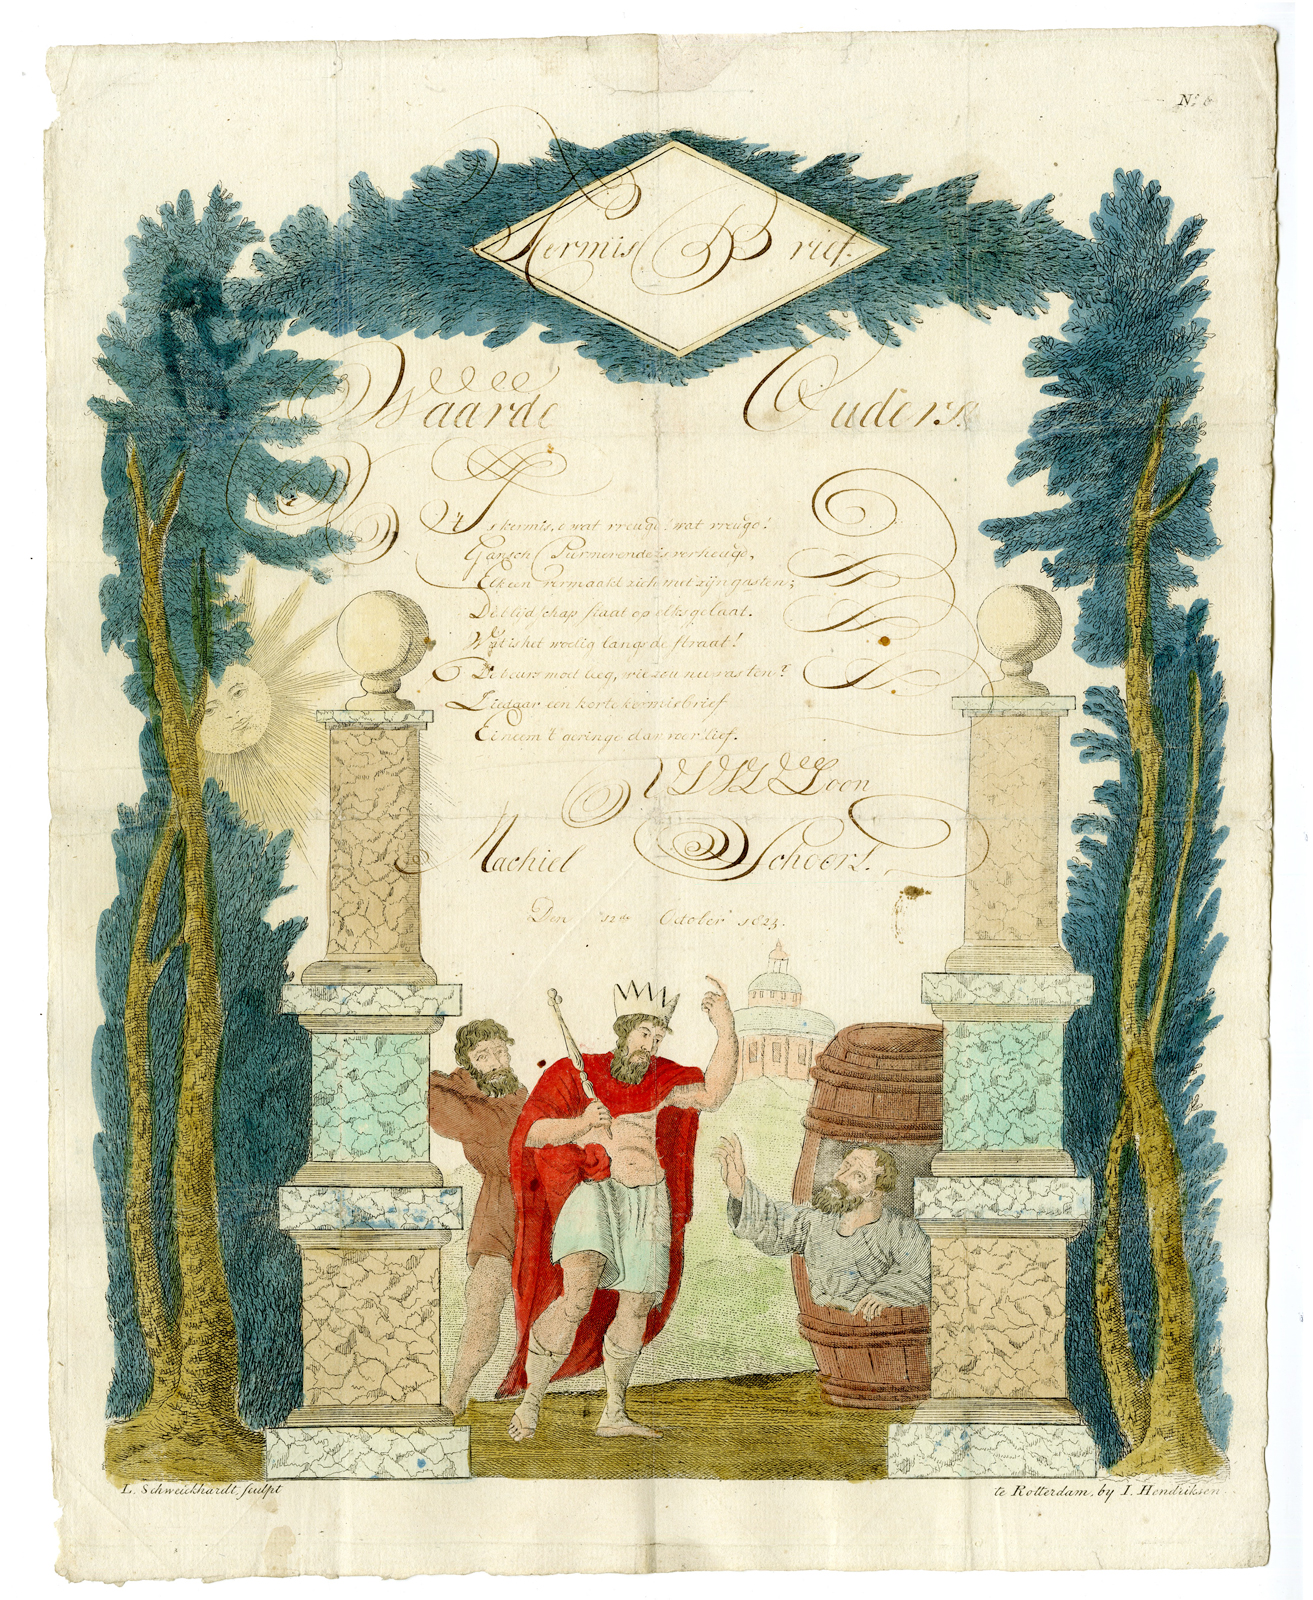 No. 6
Kermis Brief.
Waarde Ouders.
't Is kermis, o wat vreugd! wat vreugd!
Gansch Purmerende is verheugd,
Elkeen vermaakt zich met zijn gasten;
De blijdschap staat op elks gelaat.
Wat is het woelig langs de straat!
De beurs moet leeg, wie zou nu vasten?
Ziedaar een korte kermisbrief
Ei neem 't geringe dan voor lief.
U Zoon
Machiel Schoerl.
Den 12de October 1823.
L. Schweickhardt, sculpt
te Rotterdam, by I. Hendriksen